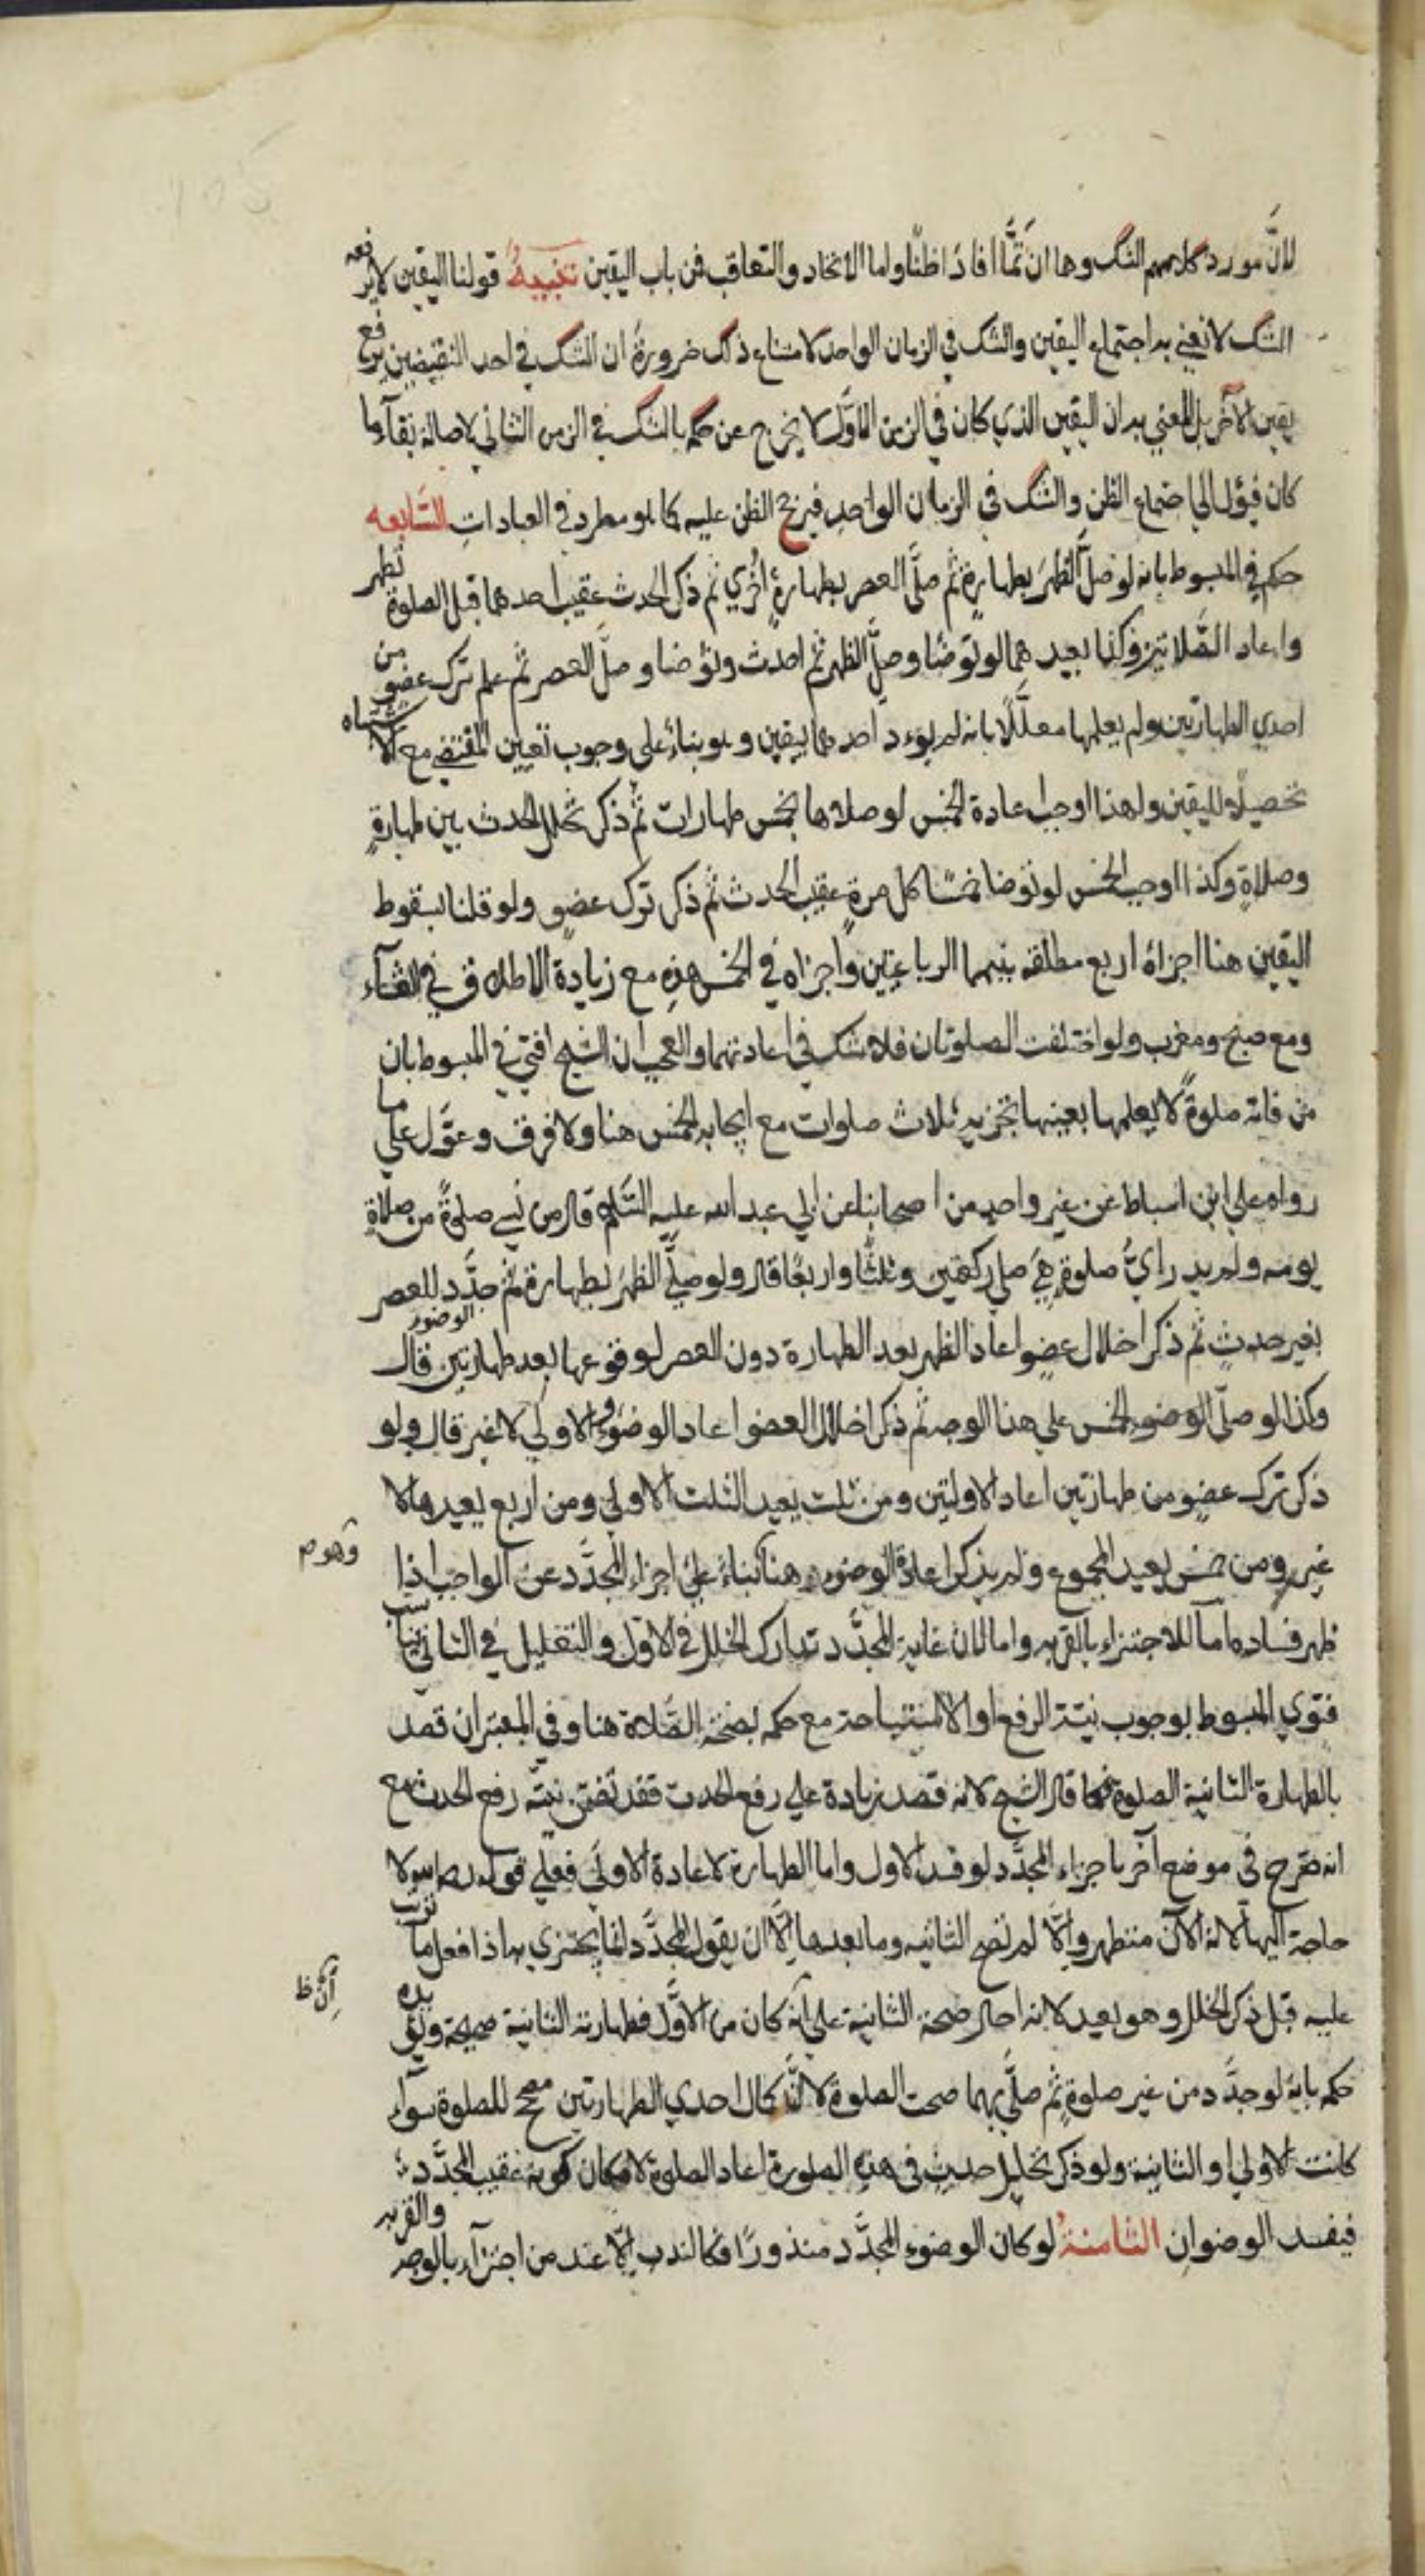 لانَّ مورد كلامهم الشك وهما ان تمّا افادَا ظنّا واما الاتحاد والتعاقب فمن باب اليقين تنبيهٌ قولنا اليقين لا يرفعه
الشك لا نعني به اجتماع اليقين والشك في الزمان الواحد لامتناع ذلك ضرورةَ ان الشك في احد النقيضين يرفع
يقين الآخر بل المعني به ان اليقين الذي كان في الزمن الاوّل لا يخرج عن حكمه بالشك في الزمن الثاني لاصالة بقآء ما
كان فيؤل الي اجتماع الظن والشك في الزمان الواحد فيرجح الظن عليه كما هو مطرد في العبادات السّابعه
حكم في المبسوط بانه لو صلّي الظهرَ بطهارةٍ ثم صلَّي العصر بطهارةٍ أخري ثم ذكر الحدث عقيب احدهما قبل الصلوة تطهر
واعاد الصَّلاتين وكذا يعيدهما لو توضّأ وصلّي الظهر ثم احدث وتوضا وصلّي العصر ثم علم ترك عضوٍ من
احدي الطهارتين ولم يعلمها معلّلًا بانه لم يؤد احدهما بيقين وهو بناءً علي وجوب تعيين المقتضي مع الاشتباه
تحصيلًا لليقين ولهذا اوجب اعادة الخمس لو صلاها بخمس طهارات ثم ذكر تخلل الحدث بين طهارةٍ
وصلاةٍ وكذا اوجب الخمس لو توضا خمسًا كل مرةٍ عقيب الحدث ثم ذكر ترك عضوٍ ولو قلنا بسقوط
اليقين هنا اجزاهُ اربع مطلقة بينهما الرباعيتين واجزاه في الخمس هذه مع زيادة الاطلاق في العشآء
ومع صبح ومغرب ولو اختلفت الصلوتان فلا شك في اعادتهما والعجب ان الشيخ افتي في المبسوط بان
من فاته صلوةً لا يعلمها بعينها تجزيه ثلاث صلوات مع ايجابه الخمس هنا ولا فرق وعوّل علي ما
رواه علي ابن اسباط عن غير واحدٍ من اصحابنا عن ابي عبد الله عليه السَّلام قال من نسي صلوةً من صلاةِ
يومه ولم يدرِ ايُّ صلوةٍ هيَ صلي ركعتين وثلثًا واربعًا قال ولو صلَّي الظهرَ بطهارةٍ ثم جدَّد للعصر
بغير حدثٍ ثم ذكر اخلال عضوٍ اعاد الظهر بعد الطهارة دون العصر لوقوعها بعد طهارتين قال الوضوء
وكذا لو صلّي الوضوء الخمس علي هذا الوجه ثم ذكر اخلال العضو اعاد الوضوء والاولي لا غير قال ولو
ذكر ترك عضوٍ من طهارتين اعاد الاولتين ومن ثلث يعيد الثلث الاولي ومن اربع يعيدها لا
غير ومن خمس يعيد المجموع ولم يذكر اعادة الوضوء هنا بناءً علي اجزاء المجدَّد عن الواجب اذا
وهو م
ظهر فساده اما للاجتزاء بالقربه واما لان غاية المجدَّد تدارك الخلل في الاول والتعليل في الثاني يناسب
فتوي المبسوط بوجوب نيّة الرفع او الاستباحة مع حكمه بصحة الصَّلاة هنا وفي المعتبر ان قصد
بالطهارة الثانية الصلوة فكما قال الشيخ لانه قصد زيادة علي رفع الحدث فقد تضمّن نيّته رفع الحدث مع
انه صّرح في موضع آخر باجزاء المجدَّد لو فسد الاول واما الطهارة لاعادة الاوليَ فعلي قوله رحمه الله لا
حاجة اليها لانه الآن متطهر والّا لم تصح الثانيه وما بعدها الَّا ان يقول المجدَّد انما يجتزي به اذا فعل ما ترتب
عليه قبل ذكر الخلل وهو بعيد لانه احال صحة الثانية علي انه كان من الاوَّل فطهارته الثانية صحيحة ويؤيده
ان ظ
حكمه بانه لو جدَّد من غير صلوةٍ ثم صلَّي بهما صحت الصلوة لانَّ كمال احدي الطهارتين مصحح للصلوة سوآء
كانت الاولي او الثانية ولو ذكر تخليل حدثٍ في هذه الصورة اعاد الصلوة لامكان كونه عقيب المجدَّد
فيفسد الوضوان الثامنةُ لو كان الوضوء المجدَّد منذورًا فكالندب الّا عند من اجتزآء بالوجه والقربه